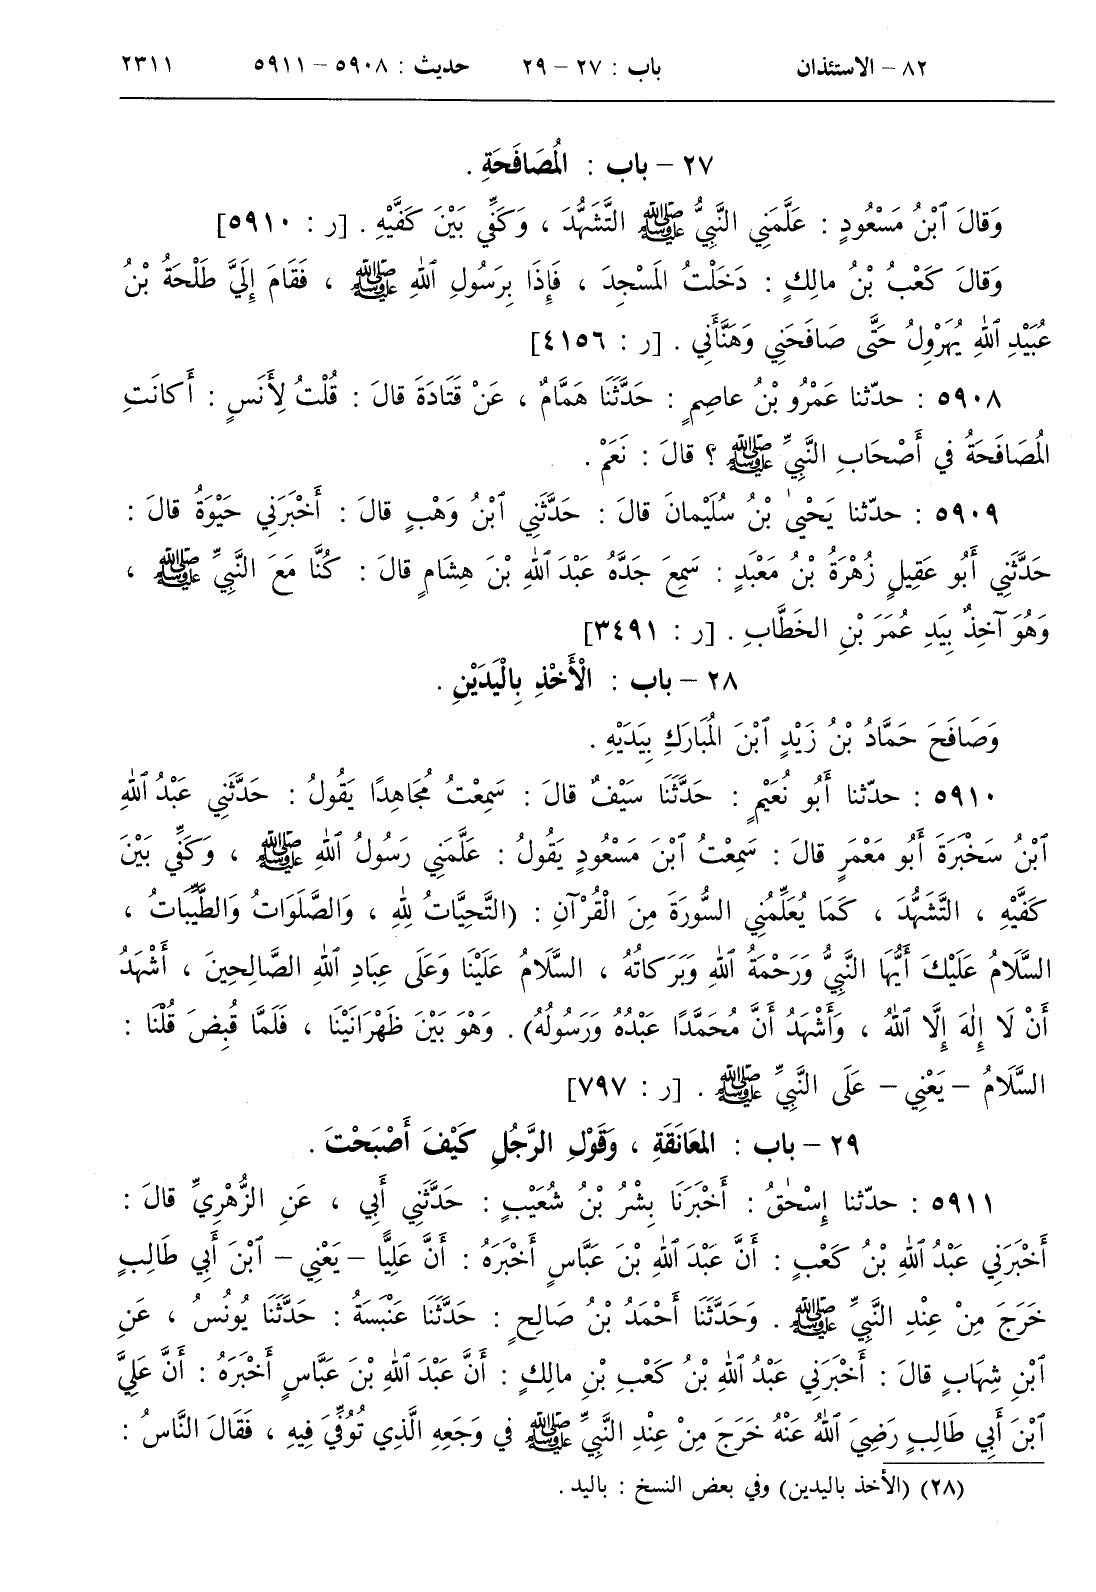 ٨٢ – الاستئذان باب : ٢٧ – ٢٩ حديث : ٥٩٠٨ – ٥٩١١ ٢٣١١
٢٧ – باب : المُصَافَحَةِ .
وَقالَ ٱبْنُ مَسْعُودٍ : عَلَّمَنِي النَّبِيُّ ﷺ التَّشَهُّدَ ، وَكَفِّي بَيْنَ كَفَّيْهِ . [ر : ٥٩١٠]
وَقالَ كَعْبُ بْنُ مالِكٍ : دَخَلْتُ المَسْجِدَ ، فَإِذَا بِرَسُولِ ٱللهِ ﷺ ، فَقَامَ إِلَيَّ طَلْحَةُ بْنُ
عُبَيْدِ ٱللهِ يُهَرْوِلُ حَتَّى صَافَحَنِي وَهَنَّأَنِي . [ر : ٤١٥٦]
٥٩٠٨ : حدّثنا عَمْرُو بْنُ عاصِمٍ : حَدَّثَنَا هَمَّامٌ ، عَنْ قَتَادَةَ قالَ : قُلْتُ لِأَنَسٍ : أَكانَتِ
المُصَافَحَةُ في أَصْحَابِ النَّبِيِّ ﷺ ؟ قالَ : نَعَمْ .
٥٩٠٩ : حدّثنا يَحْيىٰ بْنُ سُلَيْمانَ قالَ : حَدَّثَنِي ٱبْنُ وَهْبٍ قالَ : أَخْبَرَنِي حَيْوَةُ قالَ :
حَدَّثَنِي أَبُو عَقِيلٍ زُهْرَةُ بْنُ مَعْبَدٍ : سَمِعَ جَدَّهُ عَبْدَ ٱللهِ بْنَ هِشَامٍ قالَ : كُنَّا مَعَ النَّبِيِّ ﷺ ،
وَهُوَ آخِذٌ بِيَدِ عُمَرَ بْنِ الخَطَّابِ . [ر : ٣٤٩١]
٢٨ – باب : الْأَخْذِ بِالْيَدَيْنِ .
وَصَافَحَ حَمَّادُ بْنُ زَيْدٍ ٱبْنَ المُبَارَكِ بِيَدَيْهِ .
٥٩١٠ : حدّثنا أَبُو نُعَيْمٍ : حَدَّثَنَا سَيْفٌ قالَ : سَمِعْتُ مُجَاهِدًا يَقُولُ : حَدَّثَنِي عَبْدُ ٱللهِ
ٱبْنُ سَخْبَرَةَ أَبُو مَعْمَرٍ قالَ : سَمِعْتُ ٱبْنَ مَسْعُودٍ يَقُولُ : عَلَّمَنِي رَسُولُ ٱللهِ ﷺ ، وَكَفِّي بَيْنَ
كَفَّيْهِ ، التَّشَهُّدَ ، كَمَا يُعَلِّمُنِي السُّورَةَ مِنَ الْقُرْآنِ : (التَّحِيَّاتُ لِلهِ ، وَالصَّلَوَاتُ وَالطَّيِّبَاتُ ،
السَّلَامُ عَلَيْكَ أَيُّهَا النَّبِيُّ وَرَحْمَةُ ٱللهِ وَبَرَكاتُهُ ، السَّلَامُ عَلَيْنَا وَعَلَى عِبَادِ ٱللهِ الصَّالِحِينَ ، أَشْهَدُ
أَنْ لَا إِلٰهَ إِلَّا ٱللهُ ، وَأَشْهَدُ أَنَّ مُحَمَّدًا عَبْدُهُ وَرَسُولُهُ) . وَهْوَ بَيْنَ ظَهْرَانَيْنَا ، فَلَمَّا قُبِضَ قُلْنَا :
السَّلَامُ – يَعْنِي – عَلَى النَّبِيِّ ﷺ . [ر : ٧٩٧]
٢٩ – باب : المعَانَقَةِ ، وَقَوْلِ الرَّجُلِ كَيْفَ أَصْبَحْتَ .
٥٩١١ : حدّثنا إِسْحٰقُ : أَخْبَرَنَا بِشْرُ بْنُ شُعَيْبٍ : حَدَّثَنِي أَبِي ، عَنِ الزُّهْرِيِّ قالَ :
أَخْبَرَنِي عَبْدُ ٱللهِ بْنُ كَعْبٍ : أَنَّ عَبْدَ ٱللهِ بْنَ عَبَّاسٍ أَخْبَرَهُ : أَنَّ عَلِيًّا – يَعْنِي – ٱبْنَ أَبِي طَالِبٍ
خَرَجَ مِنْ عِنْدِ النَّبِيِّ ﷺ . وَحَدَّثَنَا أَحْمَدُ بْنُ صَالِحٍ : حَدَّثَنَا عَنْبَسَةُ : حَدَّثَنَا يُونُسُ ، عَنِ
ٱبْنِ شِهَابٍ قالَ : أَخْبَرَنِي عَبْدُ ٱللهِ بْنُ كَعْبِ بْنِ مالِكٍ : أَنَّ عَبْدَ ٱللهِ بْنَ عَبَّاسٍ أَخْبَرَهُ : أَنَّ عَلِيَّ
ٱبْنَ أَبِي طَالِبٍ رَضِيَ ٱللهُ عَنْهُ خَرَجَ مِنْ عِنْدِ النَّبِيِّ ﷺ في وَجَعِهِ الَّذِي تُوُفِّيَ فِيهِ ، فَقَالَ النَّاسُ :
(٢٨) (الأخذ باليدين) وفي بعض النسخ : باليد .